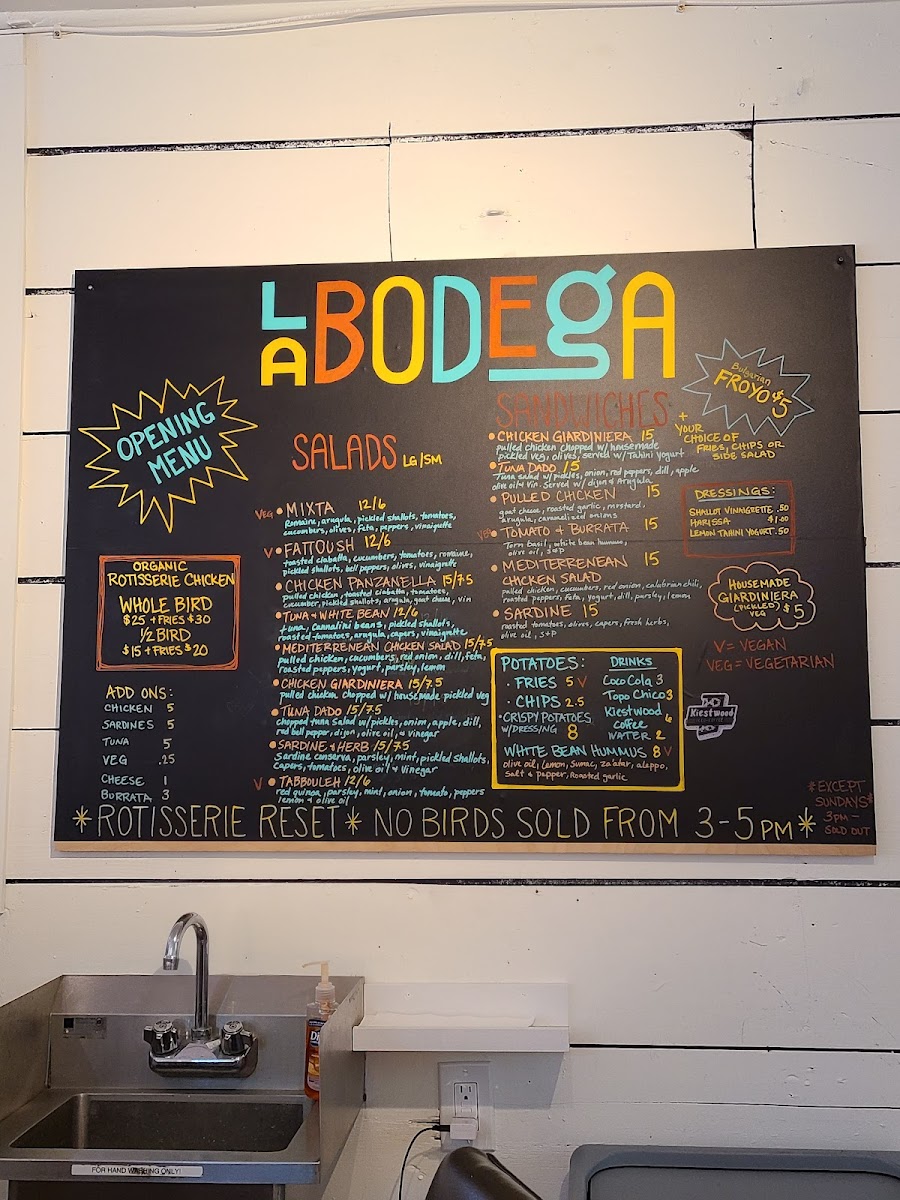 LA BODEGA
OPENING
MENU
Bulgarian
FROYO $5
SALADS LG/SM
VEG • MIXTA 12/6
Romaine, arugula, pickled shallots, tomatoes,
cucumbers, olives, feta, peppers, vinaigrette
V • FATTOUSH 12/6
toasted ciabatta, cucumbers, tomatoes, romaine,
pickled shallots, bell peppers, olives, vinaigrette
• CHICKEN PANZANELLA 15/7.5
pulled chicken, toasted ciabatta, tomatoes,
cucumber, pickled shallots, arugula, goat cheese, vin
• TUNA & WHITE BEAN 12/6
tuna, cannalini beans, pickled shallots,
roasted tomatoes, arugula, capers, vinaigrette
• MEDITERRENEAN CHICKEN SALAD 15/7.5
pulled chicken, cucumbers, red onion, dill, feta,
roasted peppers, yogurt, parsley, lemon
• CHICKEN GIARDINIERA 15/7.5
pulled chicken chopped w/ housemade pickled veg
• TUNA DADO 15/7.5
chopped tuna salad w/ pickles, onion, apple, dill,
red bell pepper, dijon, olive oil, & vinegar
• SARDINE & HERB 15/7.5
Sardine conserva, parsley, mint, pickled shallots,
Capers, tomatoes, olive oil & vinegar
V • TABBOULEH 12/6
red quinoa, parsley, mint, onion, tomato, peppers
lemon & olive oil
ORGANIC
ROTISSERIE CHICKEN
WHOLE BIRD
$25 + FRIES $30
1/2 BIRD
$15 + FRIES $20
ADD ONS:
CHICKEN 5
SARDINES 5
TUNA 5
VEG .25
CHEESE 1
BURRATA 3
SANDWICHES
+
YOUR
CHOICE OF
FRIES, CHIPS OR
SIDE SALAD
• CHICKEN GIARDINIERA 15
pulled chicken chopped w/ housemade
pickled veg, olives, served w/ Tahini yogurt
• TUNA DADO 15
Tuna salad w/ pickles, onion, red peppers, dill, apple
olive oil & vin. Served w/ dijon & Arugula
• PULLED CHICKEN 15
goat cheese, roasted garlic, mustard,
arugula, caramelized onions
VEG • TOMATO + BURRATA 15
Torn basil, white bean hummus,
olive oil, S+P
• MEDITERRENEAN 15
CHICKEN SALAD
pulled chicken, cucumbers, red onion, calabrian chili,
roasted peppers, feta, yogurt, dill, parsley, lemon
• SARDINE 15
roasted tomatoes, olives, capers, fresh herbs,
olive oil, S+P
DRESSINGS:
SHALLOT VINAIGRETTE .50
HARISSA $1.00
LEMON TAHINI YOGURT .50
HOUSEMADE
GIARDINIERA
(PICKLED) $5
VEG
V = VEGAN
VEG = VEGETARIAN
Kiestwood
POTATOES:
• FRIES 5 V
• CHIPS 2.5
• CRISPY POTATOES
W/DRESSING 8
DRINKS
Coco Cola 3
Topo Chico 3
Kiestwood
Coffee 6
WATER 2
WHITE BEAN HUMMUS 8 V
olive oil, Lemon, Sumac, za'atar, aleppo,
Salt & pepper, Roasted garlic
*ROTISSERIE RESET* NO BIRDS SOLD FROM 3-5PM*
*EXCEPT
SUNDAYS*
3PM -
SOLD OUT
FOR HAND WASHING ONLY!